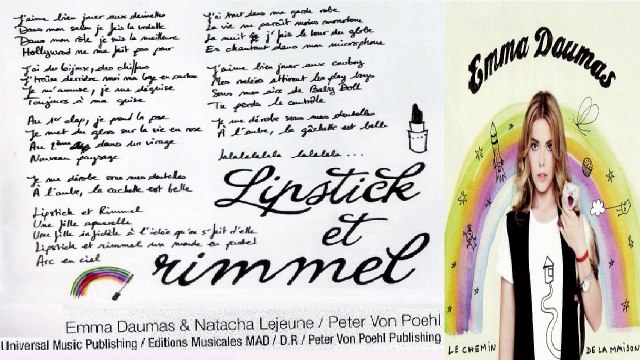 J'aime bien jouer aux devinettes
Dans mon salon je fais la vedette
Dans mon rôle je suis la meilleure
Hollywood ne me fait pas peur
J'ai des bijoux, des chiffons
J'traîne derrière moi ma loge en carton
Je m'amuse, je me déguise
Toujours à ma guise
Au 1er clap, je prend la pose
Je met du gloss sur la vie en rose
Au 2ème clap dans un virage
Nouveau paysage
Je me dérobe sous mes dentelles
À l'aube, la cachette est belle
Lipstick et Rimmel
Une fille aquarelle
Une fille infidèle à l'idée qu'on s'fait d'elle
Lipstick et rimmel un monde au pastel
Arc en ciel
J'ai tout dans ma garde robe
La vie me paraît moins monotone
La nuit je j'fais le tour du globe
En chantant dans mon microphone
J'aime bien jouer aux cowboy
Mes rodéos attirent les play boys
Sous mes airs de Baby Doll
Tu perds le contrôle
Je me dérobe sous mes dentelles
À l'aube, la gâchette est belle
lalalalalala lalalala...
Lipstick
et
rimmel
Emma Daumas & Natacha Lejeune / Peter Von Poehl
Universal Music Publishing / Editions Musicales MAD / D.R / Peter Von Poehl Publishing
Emma Daumas
LE CHEMIN DE LA MAISON